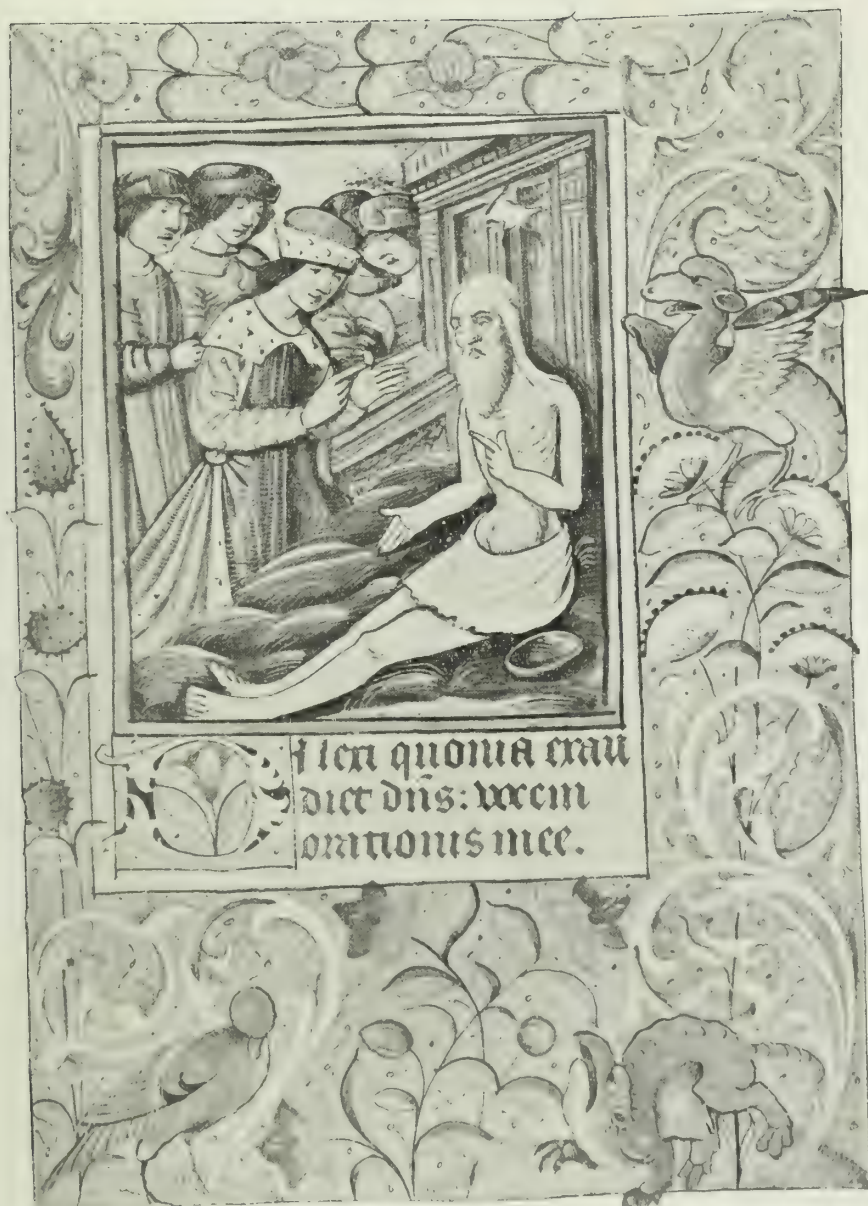 Dilexi quonia exau
diet dñs: vocem
orationis mee.